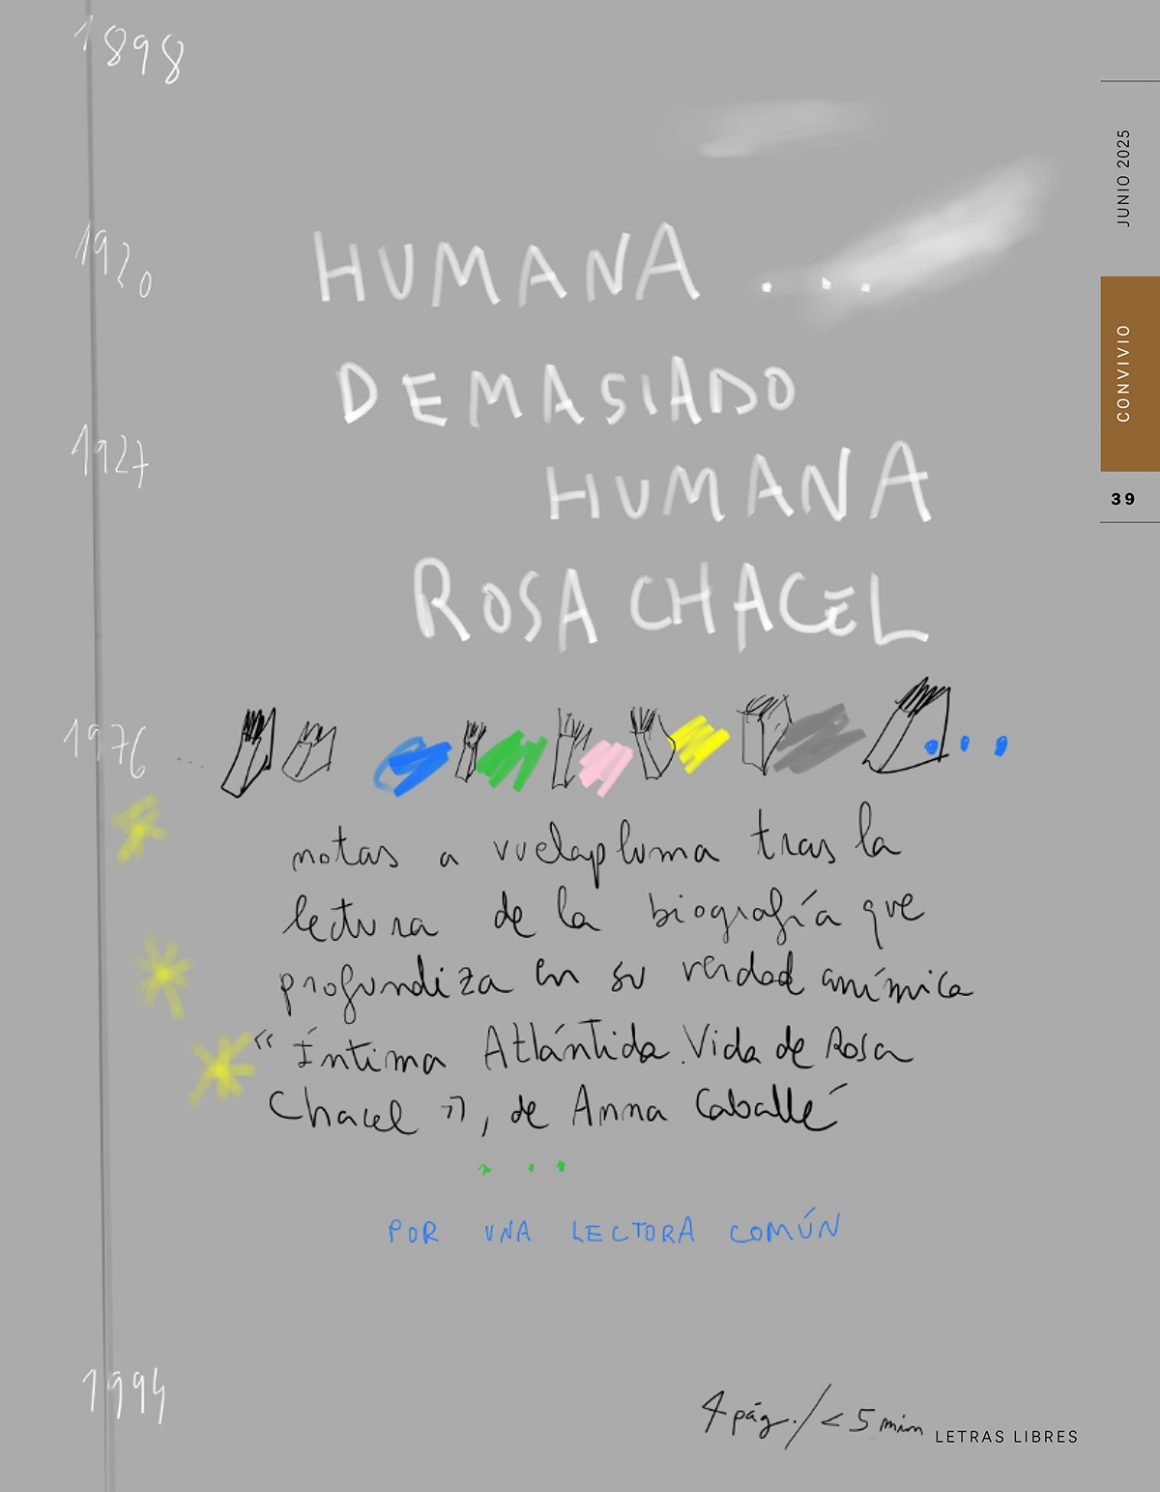 1898
JUNIO 2025
1920
HUMANA ...
CONVIVIO
DEMASIADO
1927
HUMANA
39
ROSA CHACEL
1976 ...
notas a vuelapluma tras la
lectura de la biografía que
profundiza en su verdad anímica
“Íntima Atlántida. Vida de Rosa
Chacel”, de Anna Caballé
...
POR UNA LECTORA COMÚN
1994
4 pág. / < 5 min
LETRAS LIBRES